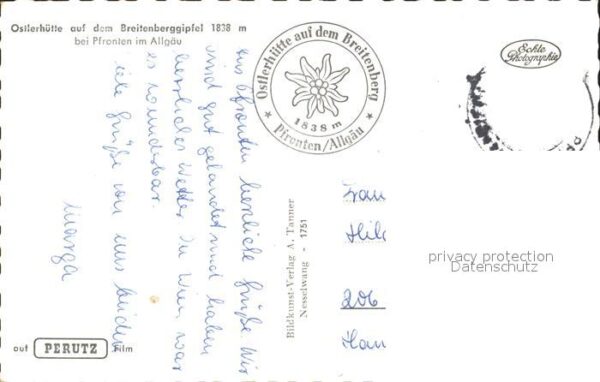 Ostlerhütte auf dem Breitenberggipfel 1838 m
bei Pfronten im Allgäu
Ostlerhütte auf dem Breitenberg
1838 m
Pfronten/Allgäu
Echte
Photographie
Aus Pfronten herzliche Grüße. Wir
sind gut gelandet und haben
herrliches Wetter. In Wien war
es wunderbar.
liebe Grüße von uns beiden
Marga
Bildkunst-Verlag A. Tanner
Nesselwang - 1751
Frau
Hil
206
Han
privacy protection
Datenschutz
auf PERUTZ Film